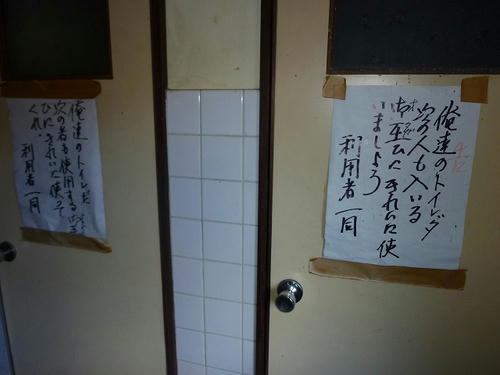 俺達のトイレダ
次の人も入いる
御互にきれいに使
いましょう
利用者一同
俺達のトイレだ
次の者も使用する
ひにきれいに使って
くれ
利用者一同